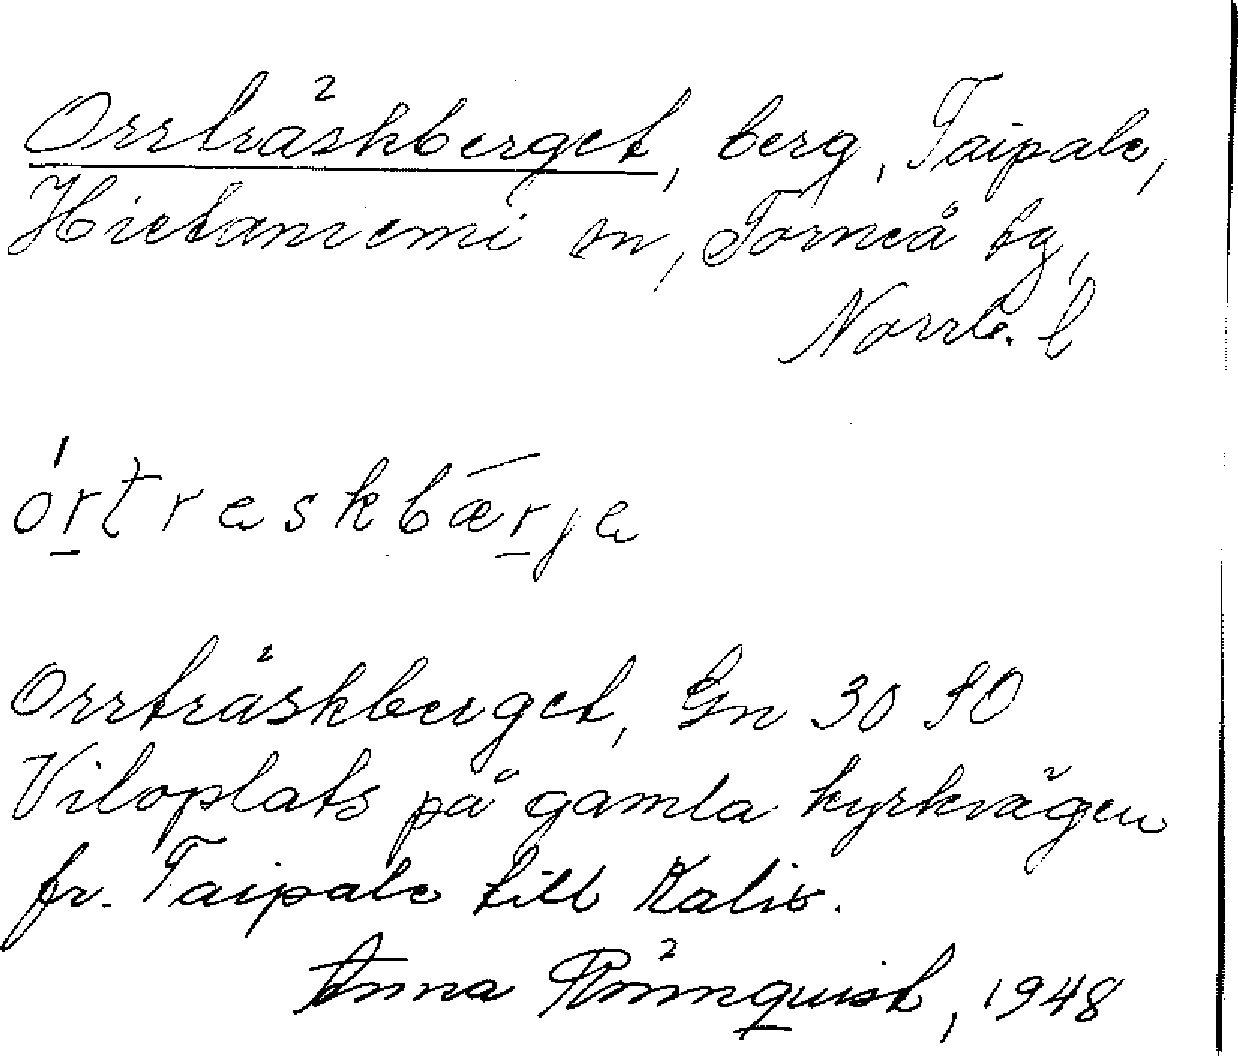 Orrträskberget, berg, Taipale,
Hietaniemi sn, Torneå hg,
Norrb. l
órtreskbærje
Orrträskberget, Gn 30 SO
Viloplats på gamla kyrkvägen
fr. Taipale till Kalix.
Anna Rönnquist, 1948